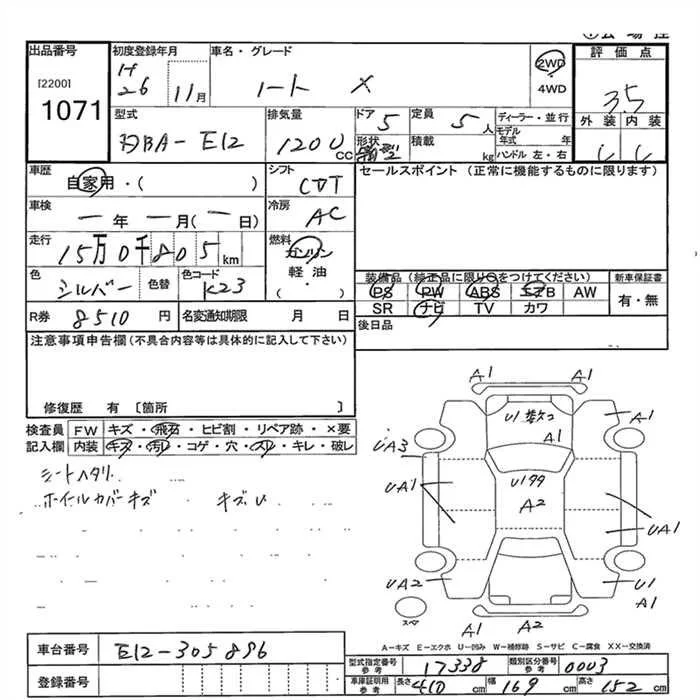 出品番号 初度登録年月 車名・グレード 2WD 評価点
[2200] H26 11月 ノート X 4WD 3.5
1071 型式 排気量 ドア 定員 ディーラー・並行 外装 内装
DBA-E12 1200 CC 5 5人 モデル年式 年
形状 積載 kg ハンドル 左・右
車歴 シフト セールスポイント (正常に機能するものに限ります)
自家用・( ) CVT
車検 冷房
ー年ー月(ー日) AC
走行 燃料
15万0千805km ガソリン
色 色替 色コード 軽油
シルバー K23 ( )
装備品(純正品に限り○をつけてください) 新車保証書
PS PW ABS エアB AW 有・無
SR ナビ TV カワ
R券 8510円 名変通知期限 月 日
後日品
注意事項申告欄(不具合内容等は具体的に記入して下さい)
修復歴 有 〔箇所 〕
検査員 FW キズ・飛石・ヒビ割・リペア跡・×要
記入欄 内装 キズ・汚レ・コゲ・穴・スレ・キレ・破レ
シートヘタリ
ホイールカバーキズ キズU
A1 A1
U1 数コ A1
A1
UA3
UA1 U1 99
A2
UA1
UA2 U1
A1
スペア
A1 A2
A-キズ E-エクボ U-凹み W-補修跡 S-サビ C-腐食 XX-交換済
車台番号 E12-305896
登録番号
型式指定番号 参考 17338 類別区分番号 参考 0003
車庫証明用 参考 長さ 410cm 幅 169cm 高さ 152cm